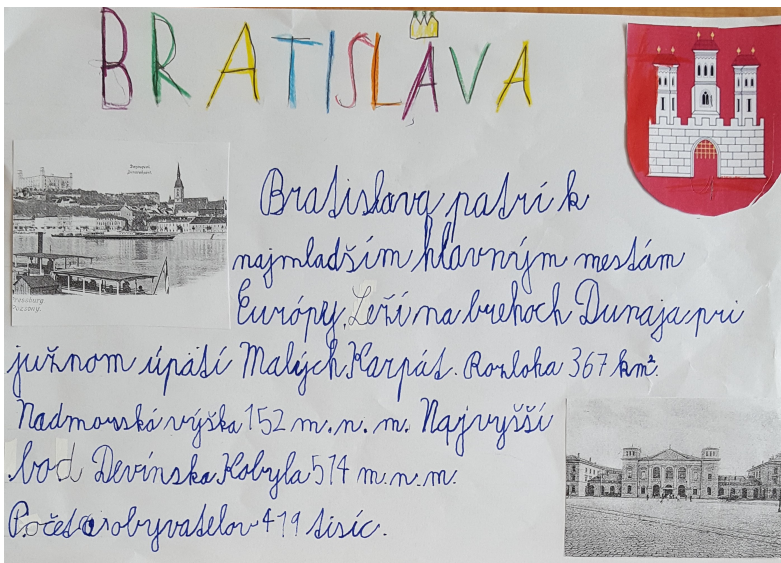 BRATISLAVA
Bratislava patrí k
najmladším hlavným mestám
Európy. Leží na brehoch Dunaja pri
južnom úpätí Malých Karpát. Rozloha 367 km².
Nadmorská výška 152 m.n.m. Najvyšší
bod Devínska Kobyla 514 m.n.m.
Počet obyvatelov 419 tisíc.
Pozsony.